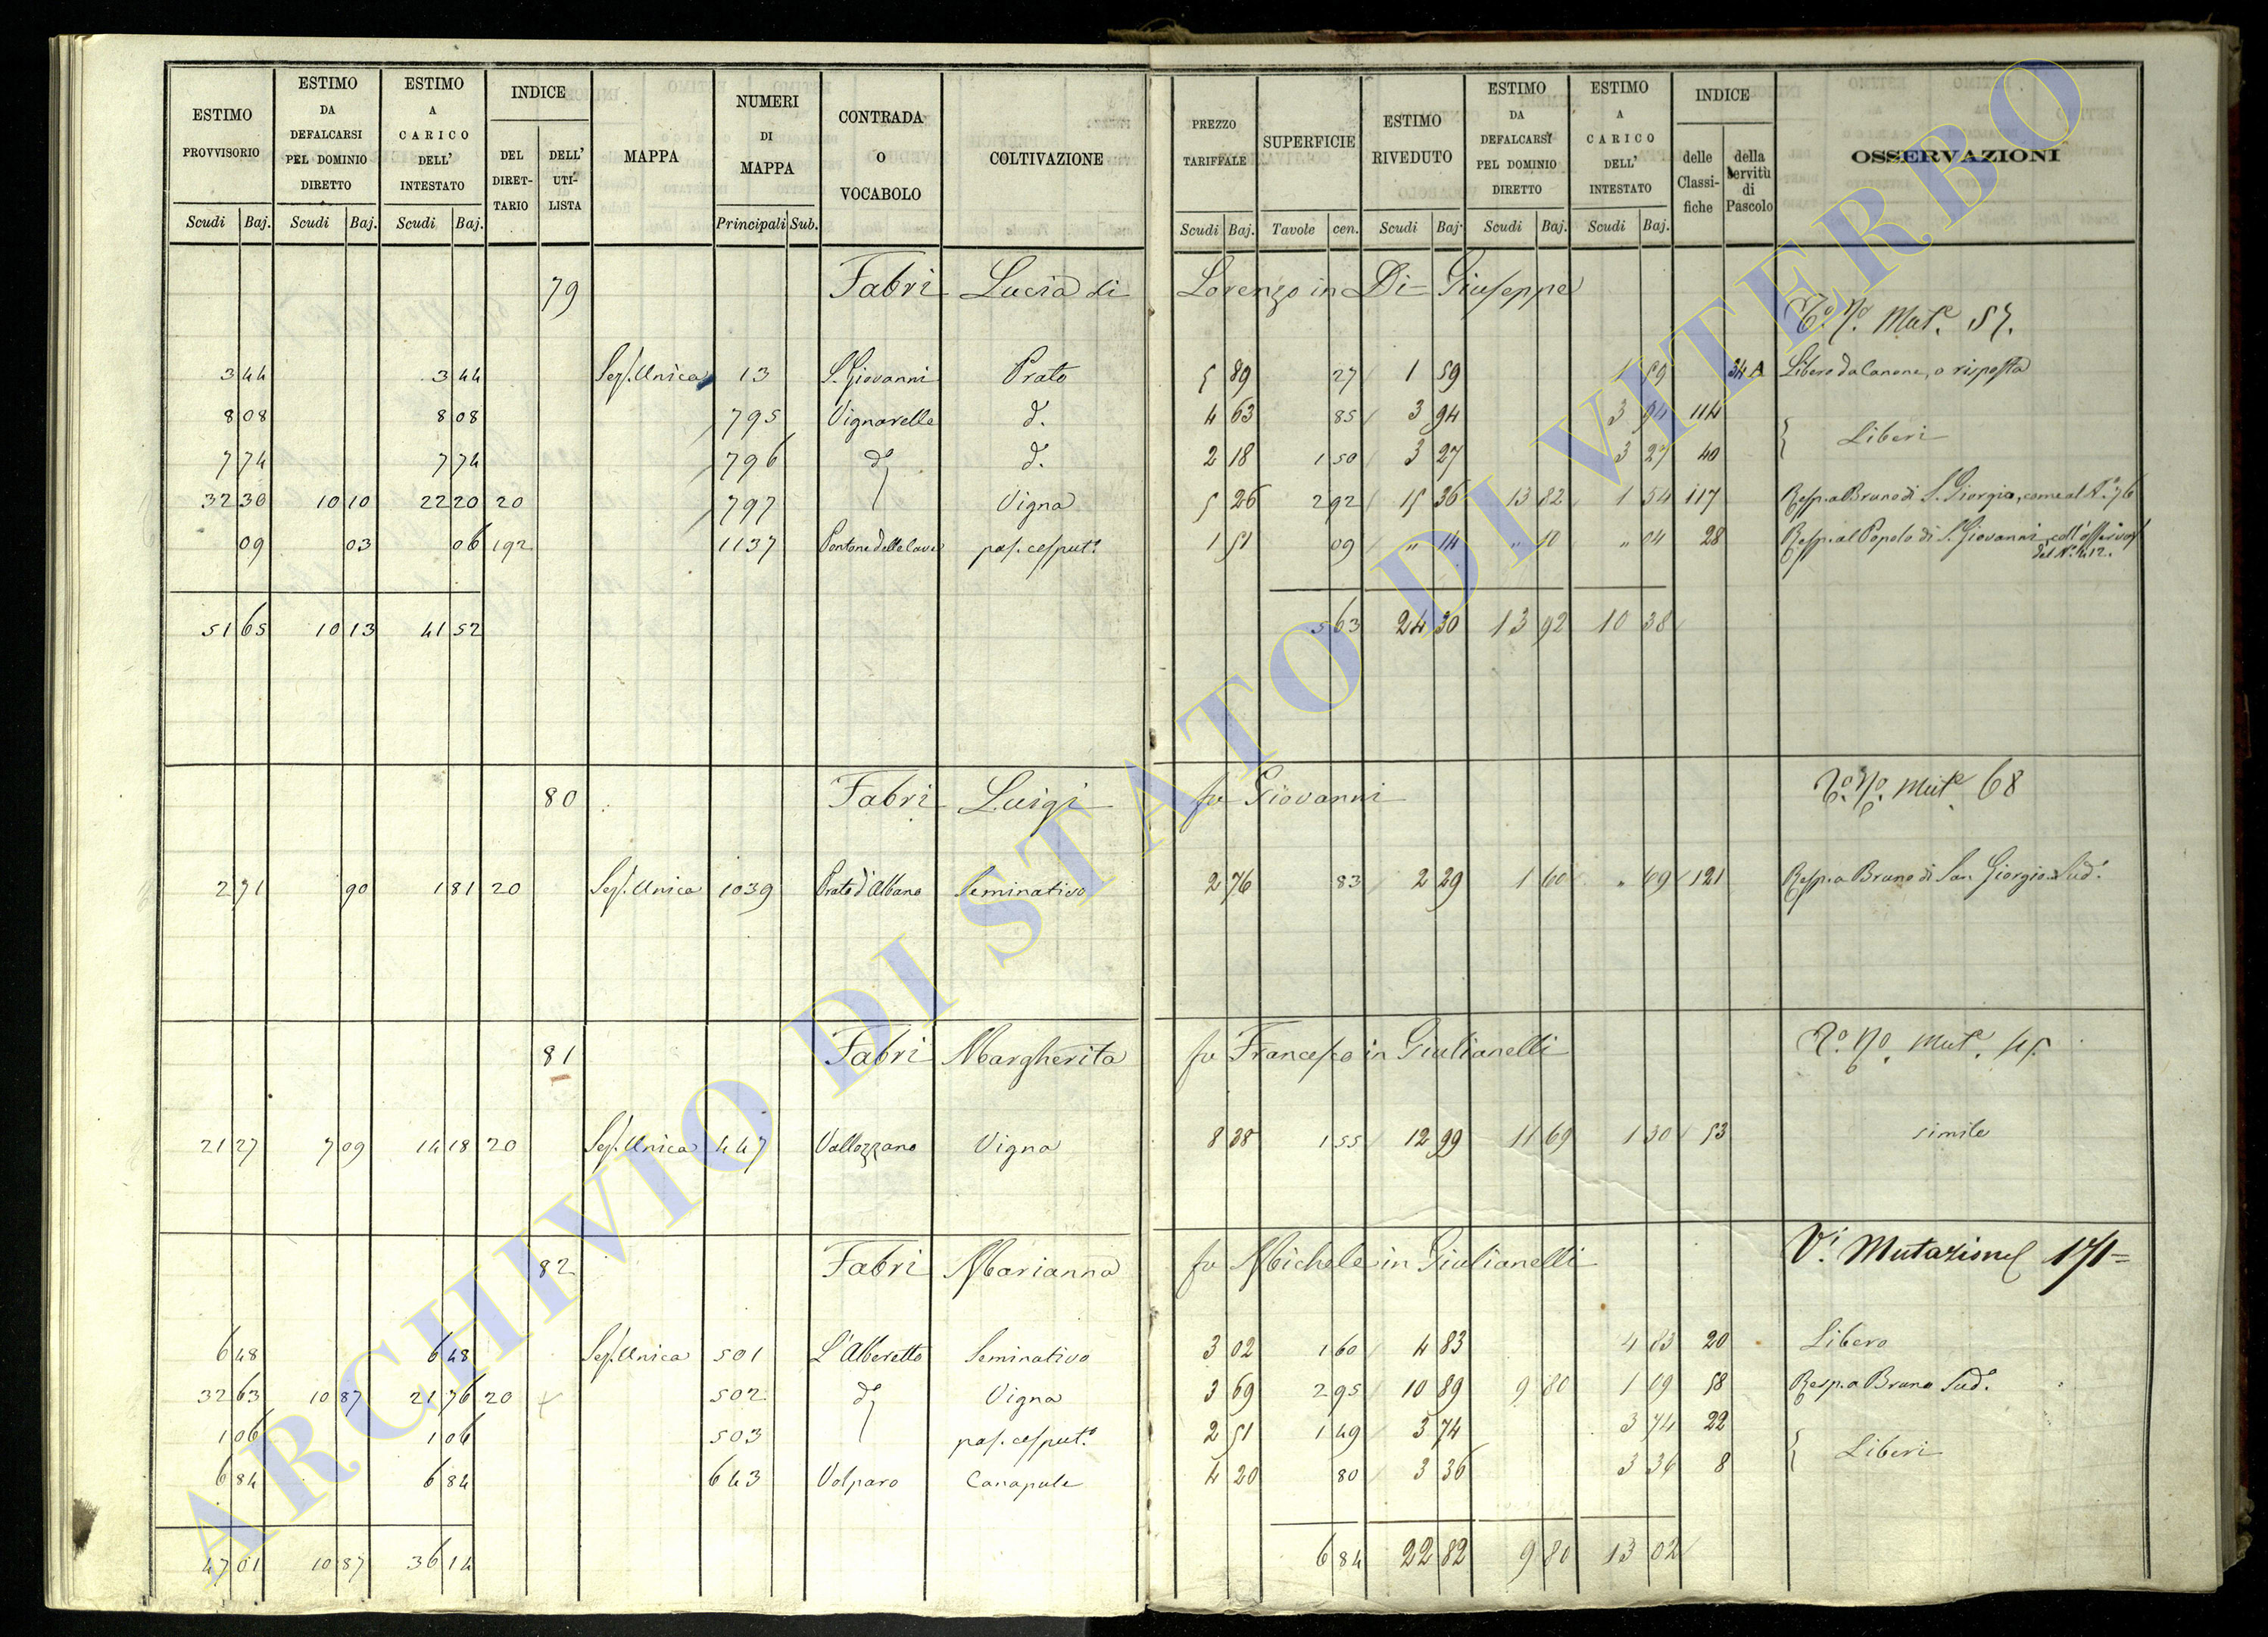 ESTIMO PROVVISORIO Scudi Baj. ESTIMO DA DEFALCARSI PEL DOMINIO DIRETTO Scudi Baj. ESTIMO A CARICO DELL' INTESTATO Scudi Baj. INDICE DEL DIRET- TARIO DELL' UTI- LISTA MAPPA NUMERI DI MAPPA Principali Sub. CONTRADA O VOCABOLO COLTIVAZIONE PREZZO TARIFFALE Scudi Baj. SUPERFICIE Tavole cen. ESTIMO RIVEDUTO Scudi Baj. ESTIMO DA DEFALCARSI PEL DOMINIO DIRETTO Scudi Baj. ESTIMO A CARICO DELL' INTESTATO Scudi Baj. INDICE delle Classi- fiche della servitù di Pascolo OSSERVAZIONI
79 Fabri Lucia di Lorenzo in Di Giuseppe
Mut.e 57.
3 44 3 44 Sez. Unica 13 S. Giovanni Prato 5 89 27 1 59 1 59 34 A Libero da Canone, o risposta
8 08 8 08 795 Vignarelle d.o 4 63 85 3 94 3 94 114
Liberi
7 74 7 74 796 d.o 2 18 1 50 3 27 3 27 40
32 30 10 10 22 20 20 797 Vigna 5 26 2 92 15 36 13 82 1 54 117 Resp. a Bruno di S. Giorgio, come al N.o 76
09 03 06 192 1137 Pontone delle Cave pas. cesput.o 1 51 09 " 14 " 10 " 04 28 Resp. al Popolo di S. Giovanni
del N.o
51 65 10 13 41 52 5 63 24 30 13 92 10 38
80 Fabri Luigi fu Giovanni Mut.e 68
2 71 90 1 81 20 Sez. Unica 1039 Prato d'Albano Seminativo 2 76 83 2 29 1 60 " 69 121 Resp. a Bruno di San Giorgio Sud.o
81 Fabri Margherita fu Francesco in Giulianelli Mut.e
21 27 7 09 14 18 20 Sez. Unica 447 Vallozzano Vigna 8 38 1 55 12 99 11 69 1 30 53 simile
82 Fabri Marianna fu Michele in Giulianelli V.i Mutazione 171=
6 48 6 48 Sez. Unica 501 L'Alberetto Seminativo 3 02 1 60 4 83 4 83 20 Libero
32 63 10 87 21 76 20 502 d.o Vigna 3 69 2 95 10 89 9 80 1 09 58 Resp. a Bruno Sud.o
1 06 1 06 503 pas. cesput.o 2 51 1 49 3 74 3 74 22
Liberi
6 84 6 84 643 Volparo Canapule 4 20 80 3 36 3 36 8
47 01 10 87 36 14 6 84 22 82 9 80 13 02
ARCHIVIO DI STATO DI VITERBO